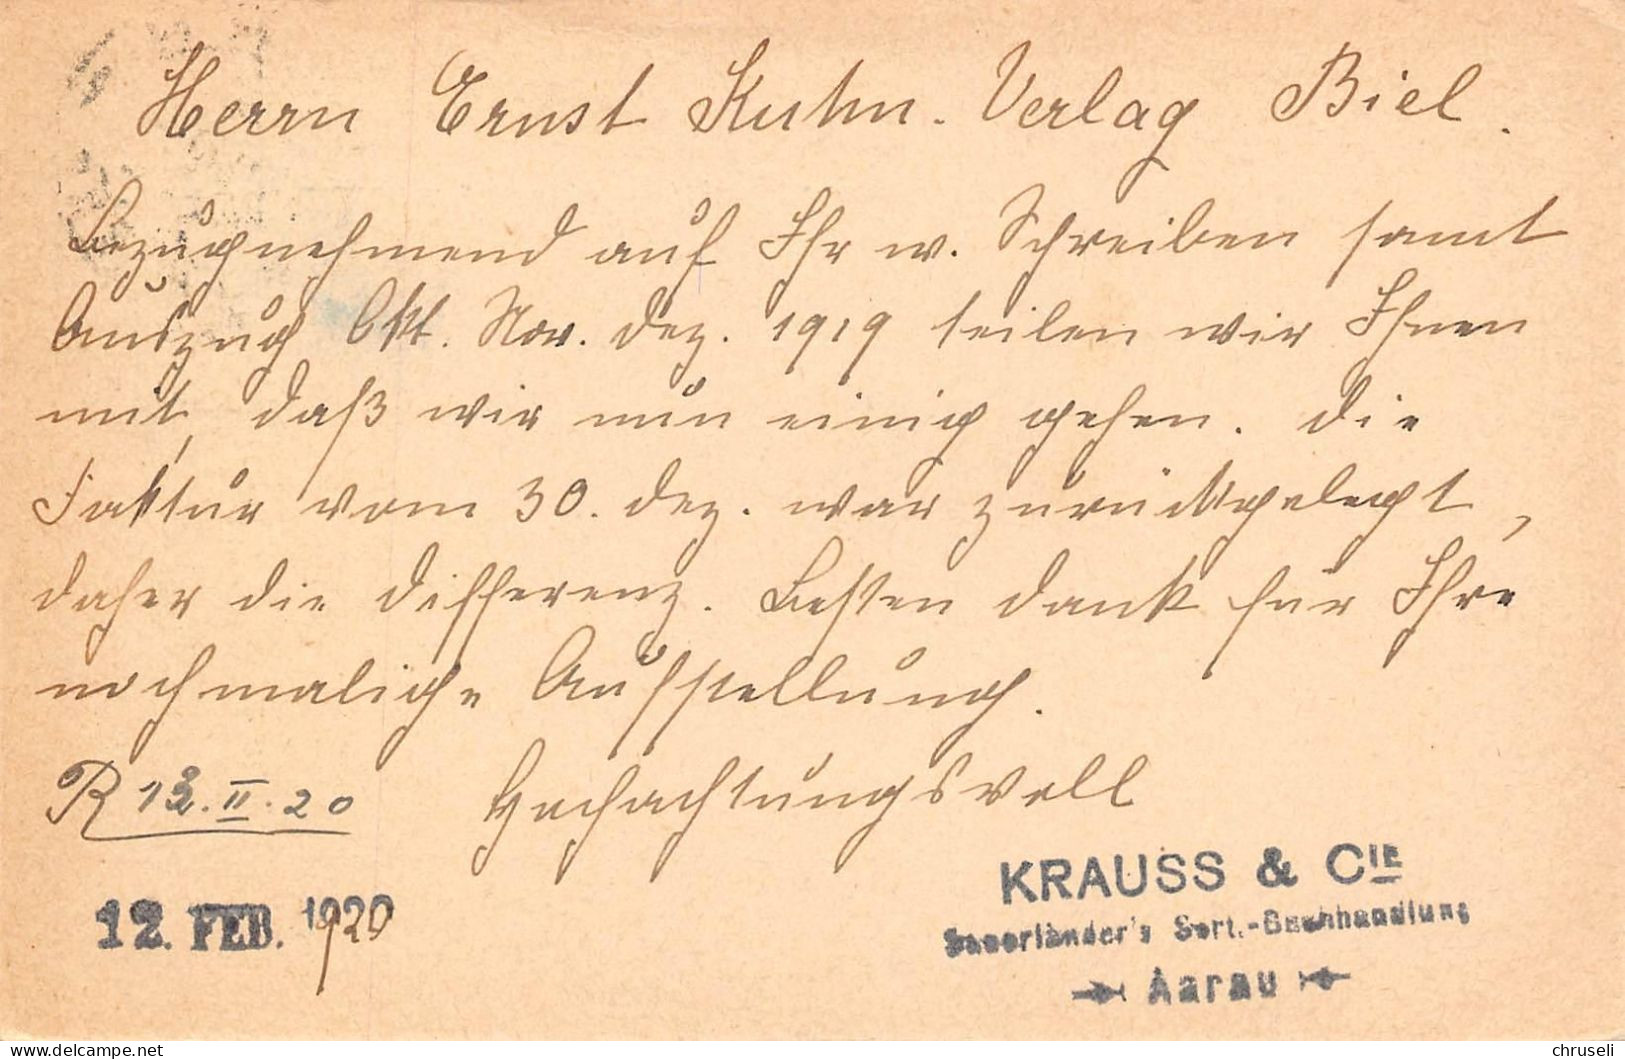 Herrn Ernst Kuhn. Verlag Biel.
Bezugnehmend auf Ihr w. Schreiben samt
Auszug Okt. Nov. Dez. 1919 teilen wir Ihnen
mit, daß wir nun einig gehen. Die
Faktur vom 30. Dez. war zurückgelegt,
daher die Differenz. Besten Dank für Ihre
nochmalige Aufstellung.
Hochachtungsvoll
R 13.II.20
12. FEB. 1920
KRAUSS & CIE
Sauerländer's Sort.-Buchhandlung
Aarau
delcampe.net
chruseli